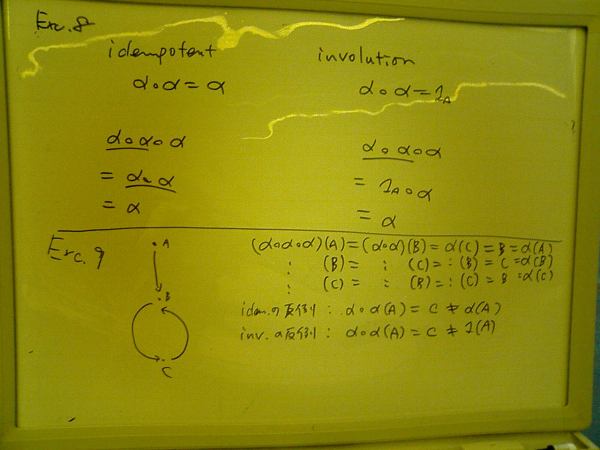 Erc. 8
idempotent
α∘α = α
α∘α∘α
= α∘α
= α
involution
α∘α = 1_A
α∘α∘α
= 1_A∘α
= α
Erc. 9
A
B
C
(α∘α∘α)(A) = (α∘α)(B) = α(C) = B = α(A)
: (B) = : (C) = : (B) = C = α(B)
: (C) = : (B) = : (C) = B = α(C)
idem.の反例 : α∘α(A) = C ≠ α(A)
inv.の反例 : α∘α(A) = C ≠ 1(A)